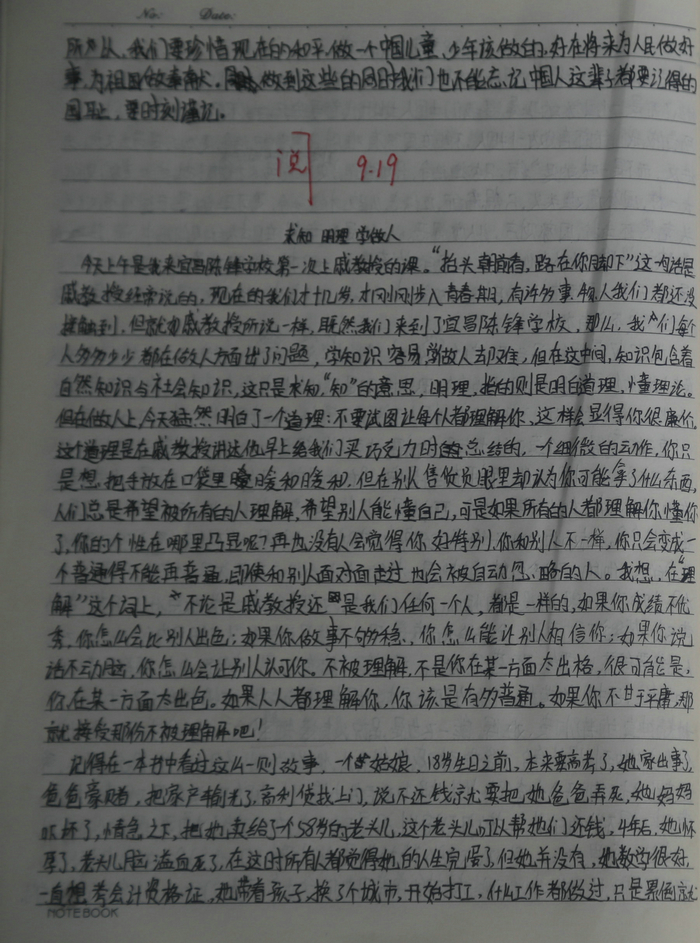 No: Date:
所以,我们要珍惜现在的和平,做一个中国儿童、少年该做的,好在将来为人民做好
事,为祖国做奉献。做到这些的同时我们也不能忘记中国人这辈子都要记得的
国耻,要时刻谨记。
阅 9.19
求知 明理 学做人
今天上午是我来宜昌陈锋学校第一次上戚教授的课。“抬头朝前看,路在你脚下”这一句话是
戚教授经常说的,现在的我们才十几岁,才刚刚步入青春期,有许多事物我们都还没
接触到,但就如戚教授所说一样,既然我们来到了宜昌陈锋学校,那么,我们每个
人多多少少都在做人方面出了问题,学知识容易学做人却难,但在这中间,知识包含着
自然知识与社会知识,这只是求知“知”的意思,明理,指的则是明白道理,懂理论。
但在做人上,今天猛然明白了一个道理:不要试图让每个人都理解你,这样会显得你很廉价。
这个道理是在戚教授讲述他早上给我们买巧克力时总结的,一个细微的动作,你只
是想把手放在口袋里暖和暖和,但在别人售货员眼里却认为你可能拿了什么东西,
人们总是希望被所有的人理解,希望别人能懂自己,可是如果所有的人都理解你懂你
了,你的个性在哪里凸显呢?再也没有人会觉得你好特别,你和别人不一样,你只会变成一
个普通得不能再普通,即使和别人面对面走过也会被自动忽略的人。我想,在“理
解”这个词上,不论是戚教授还是我们任何一个人,都是一样的,如果你成绩不优
秀,你怎么会比别人出色;如果你做事不够稳,你怎么能让别人相信你;如果你说
话不动脑,你怎么会让别人认可你。不被理解,不是你在某一方面太出格,很可能是,
你在某一方面太出色。如果人人都理解你,你该是有多普通。如果你不甘于平庸,那
就接受那份不被理解吧!
记得在一本书中看过这么一则故事,一个姑娘,18岁生日之前,本来要高考了,她家出事了,
爸爸豪赌,把家产输光了,高利贷找上门,说不还钱就要把她爸爸弄死,她妈妈
吓坏了,情急之下,把她卖给了个58岁的老头儿,这个老头儿可以帮她们还钱,4年后,她怀
孕了,老头儿脑溢血死了,在这时所有人都觉得她的人生完蛋了,但她并没有,她数学很好,
一直想考会计资格证,她带着孩子,换了个城市,开始打工,什么工作都做过,只是累倒就
NOTEBOOK